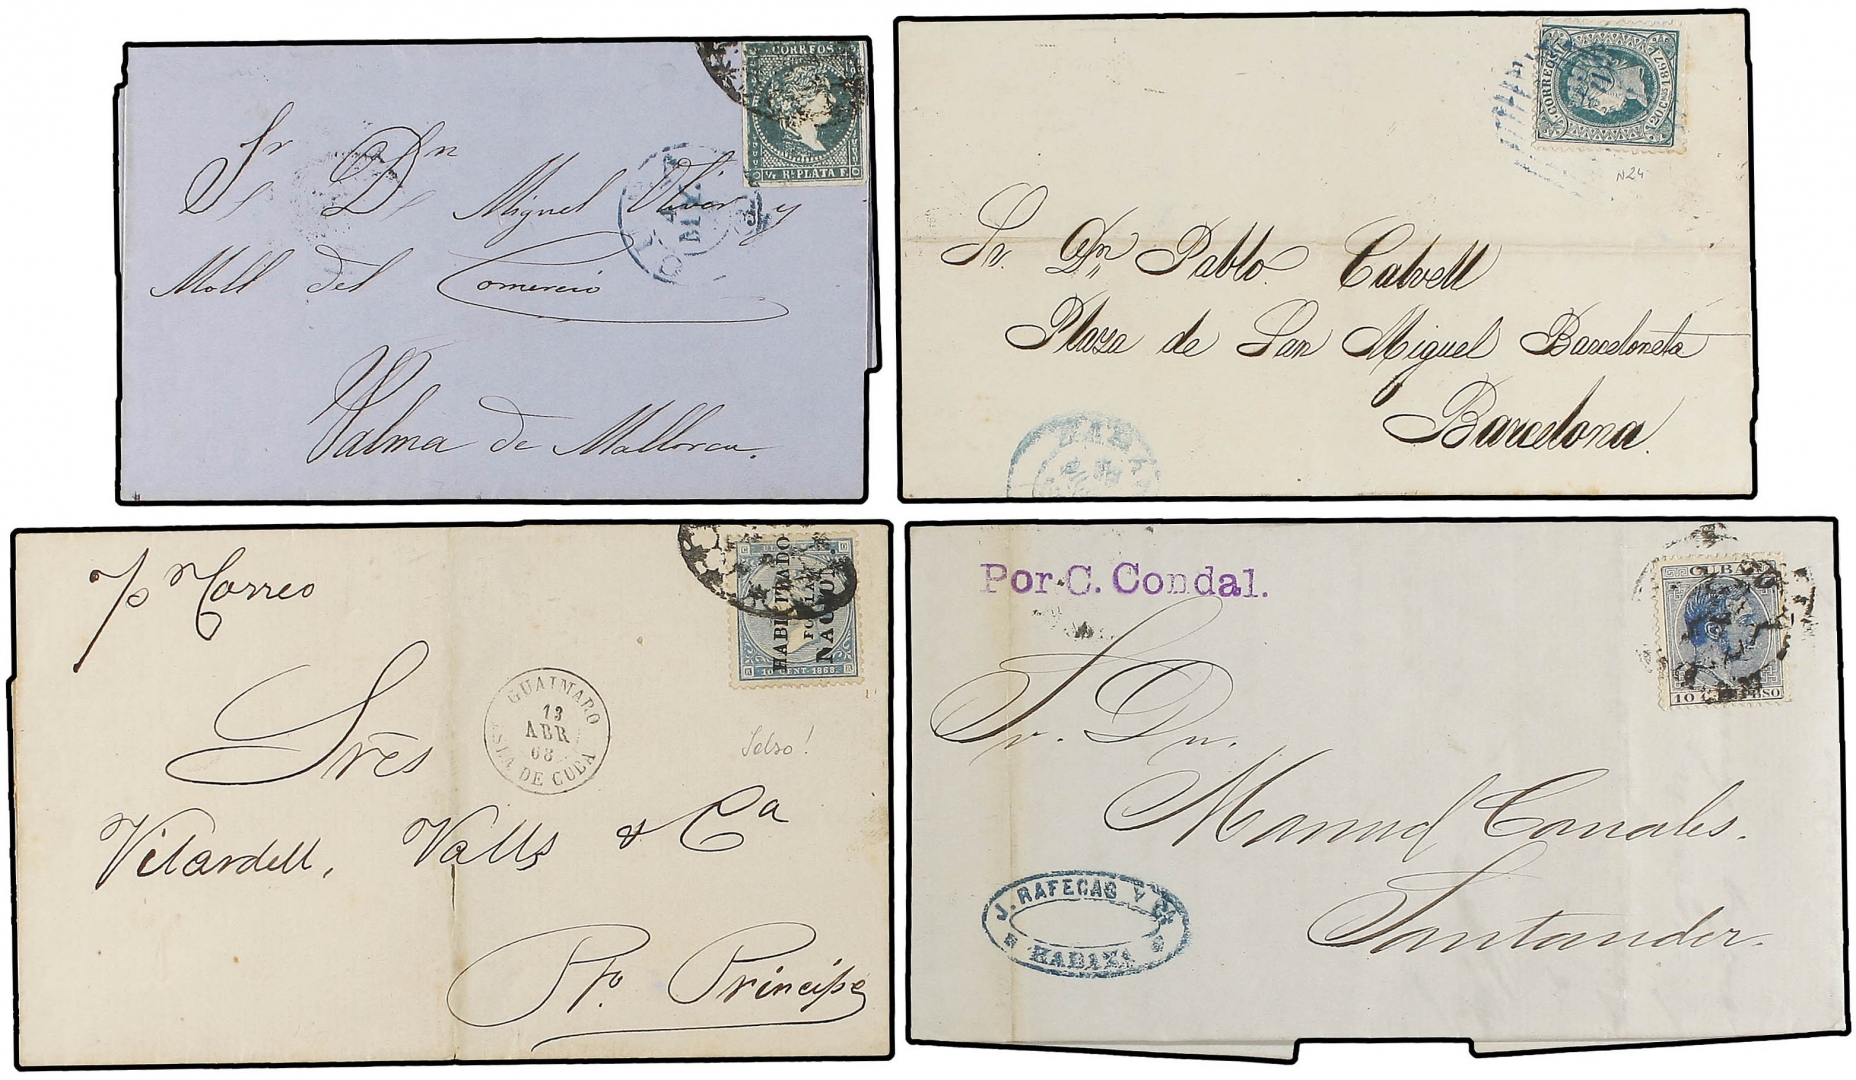 CORREOS
½ Rl PLATA F.
Sr Dn Miguel Oliver y
Moll del Comercio
Palma de Mallorca.
CORREOS
1867
20 Cmos
N24
Sr. Dn Pablo Calvell
Plaza de San Miguel Barceloneta
Barcelona.
p Correo
HABILITADO
POR LA
NACION.
10 CENT. 1868.
GUAIMARO
13
ABR
68
ISLA DE CUBA
falso!
Sres
Vilardell, Valls & Ca
Pto. Principe
Por C. Condal.
CUBA
10 C. PESO
Sr. Dn.
Manuel Canales.
Santander.
J. RAFECAS Y Ca
HABANA